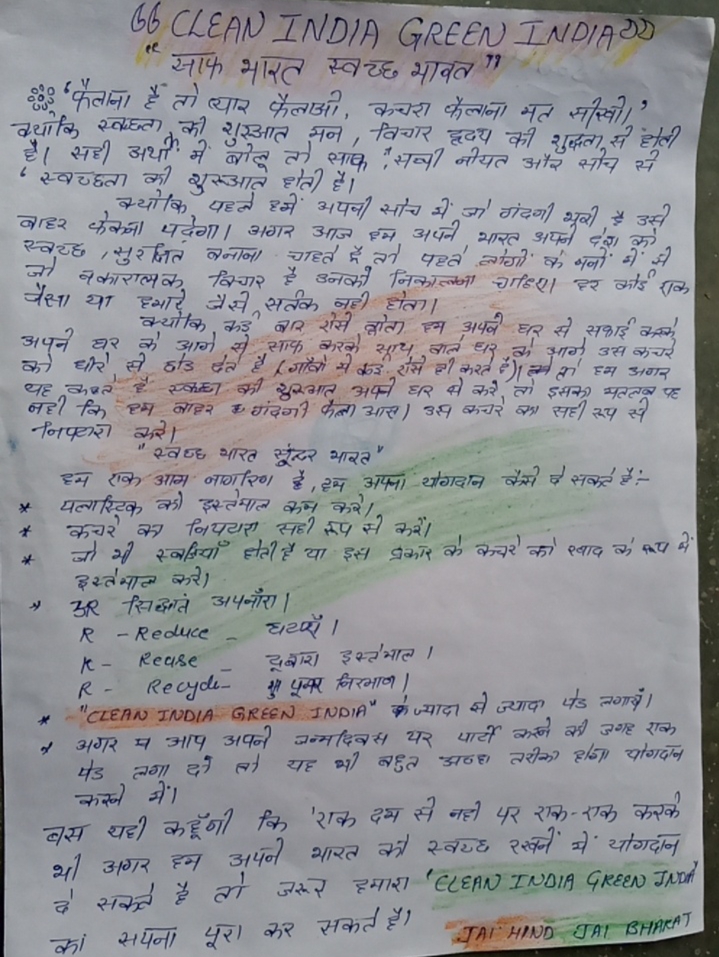 “ CLEAN INDIA GREEN INDIA ”
“ साफ भारत स्वच्छ भारत ”
‘ फैलाना है तो प्यार फैलाओ, कचरा फैलाना मत सीखो। ’
क्योंकि स्वच्छता की शुरुआत मन, विचार हृदय की शुद्धता से होती
है। सही अर्थों में बोलू तो साफ, सच्ची नीयत और सोच से
‘ स्वच्छता की शुरूआत होती है।
क्योंकि पहले हमें अपनी सोच में जो गंदगी भरी है उसे
बाहर फेकना पड़ेगा। अगर आज हम अपने भारत अपने देश को
स्वच्छ, सुरक्षित बनाना चाहते है तो पहले लोगों के मनों में से
जो नकारात्मक विचार है उनको निकालना चाहिए। हर कोई एक
जैसा या हमारे जैसे सर्तक नही होता।
क्योंकि कई बार ऐसे होता हम अपने घर से सफाई करके
अपने घर के आगे से साफ करके साथ वाले घर के आगे उस कचरे
को धीरे से छोड देते है (गाँवो में कई ऐसे ही करते है)। तो हम अगर
यह कहते है स्वच्छता की शुरुआत अपने घर से करे तो इसका मतलब यह
नही कि हम बाहर गंदगी फैला आए। उस कचरे का सही रूप से
निपटारा करे।
“ स्वच्छ भारत सुंदर भारत ”
हम एक आम नागरिक है, हम अपना योगदान कैसे दे सकते है:-
* पलास्टिक को इस्तेमाल कम करे।
* कचरे का निपटारा सही रूप से करें।
* जो भी सब्जियाँ होती है या इस प्रकार के कचरे को खाद के रूप में
इस्तेमाल करे।
* 3R सिद्धातं अपनाँए।
R - Reduce - घटाएँ।
R - Reuse - दूबारा इस्तेमाल।
R - Recycle - पूनर निरमाण।
* “CLEAN INDIA GREEN INDIA” ज्यादा से ज्यादा पेड लगाएँ।
* अगर आप अपने जन्मदिवस पर पार्टी करने की जगह एक
पेड लगा दो तो यह भी बहुत अच्छा तरीका होगा योगदान
करने में।
बस यही कहूँगी कि ‘एक दम से नही पर एक-एक करके
भी अगर हम अपने भारत को स्वच्छ रखनें में योगदान
दे सकते है तो जरूर हमारा ‘CLEAN INDIA GREEN INDIA’
का सपना पूरा कर सकते है।
JAI HIND JAI BHARAT